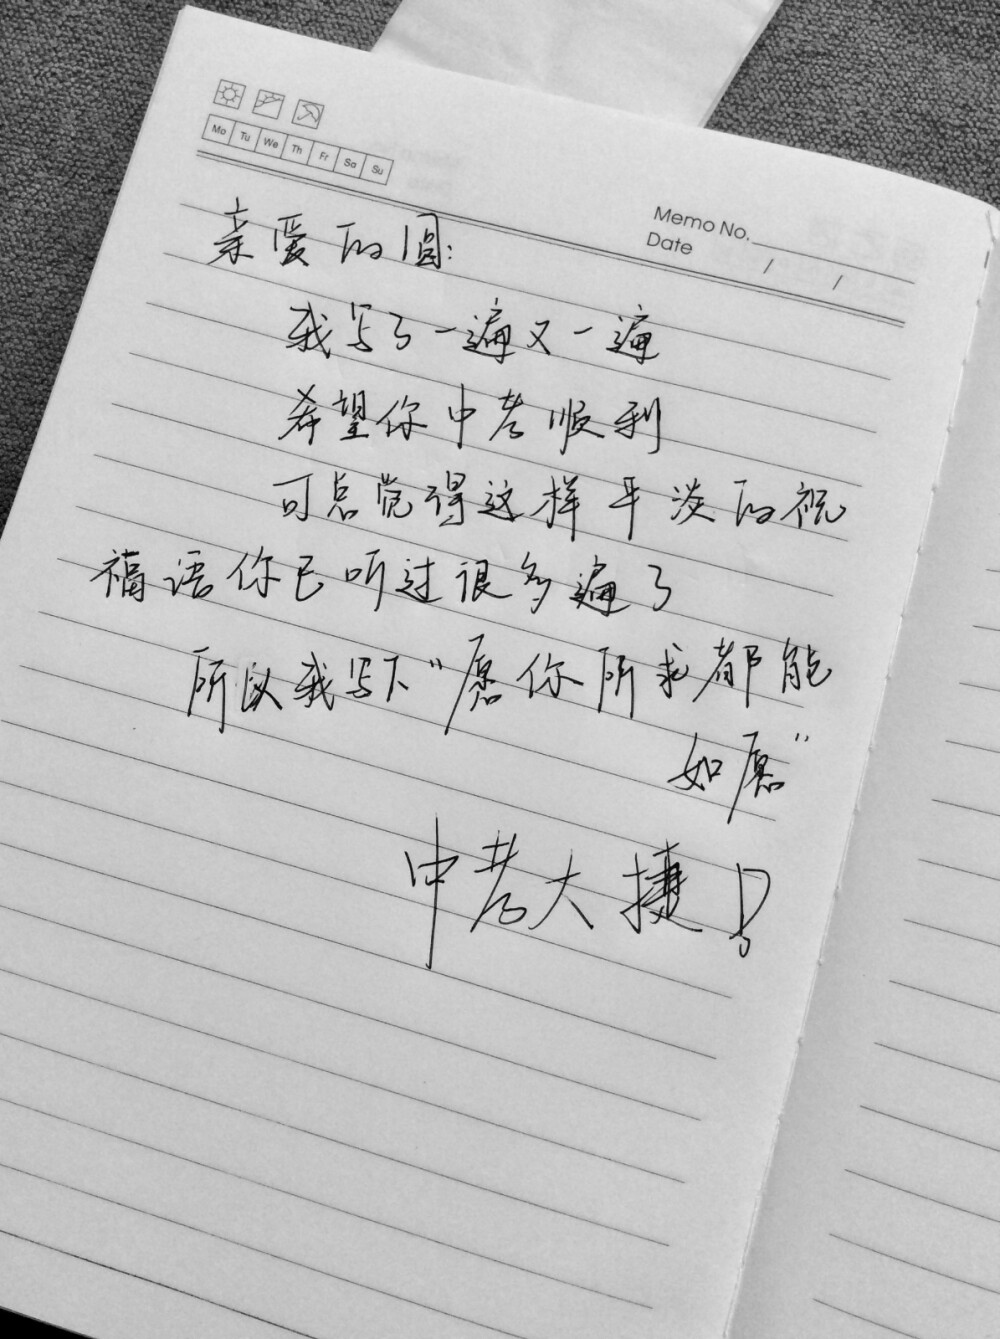 Mo Tu We Th Fr Sa Su
Memo No.
Date / /
亲爱的圆:
我写了一遍又一遍
希望你中考顺利
可总觉得这样平淡的祝
福语你已听过很多遍了
所以我写下“愿你所求都能
如愿”
中考大捷!